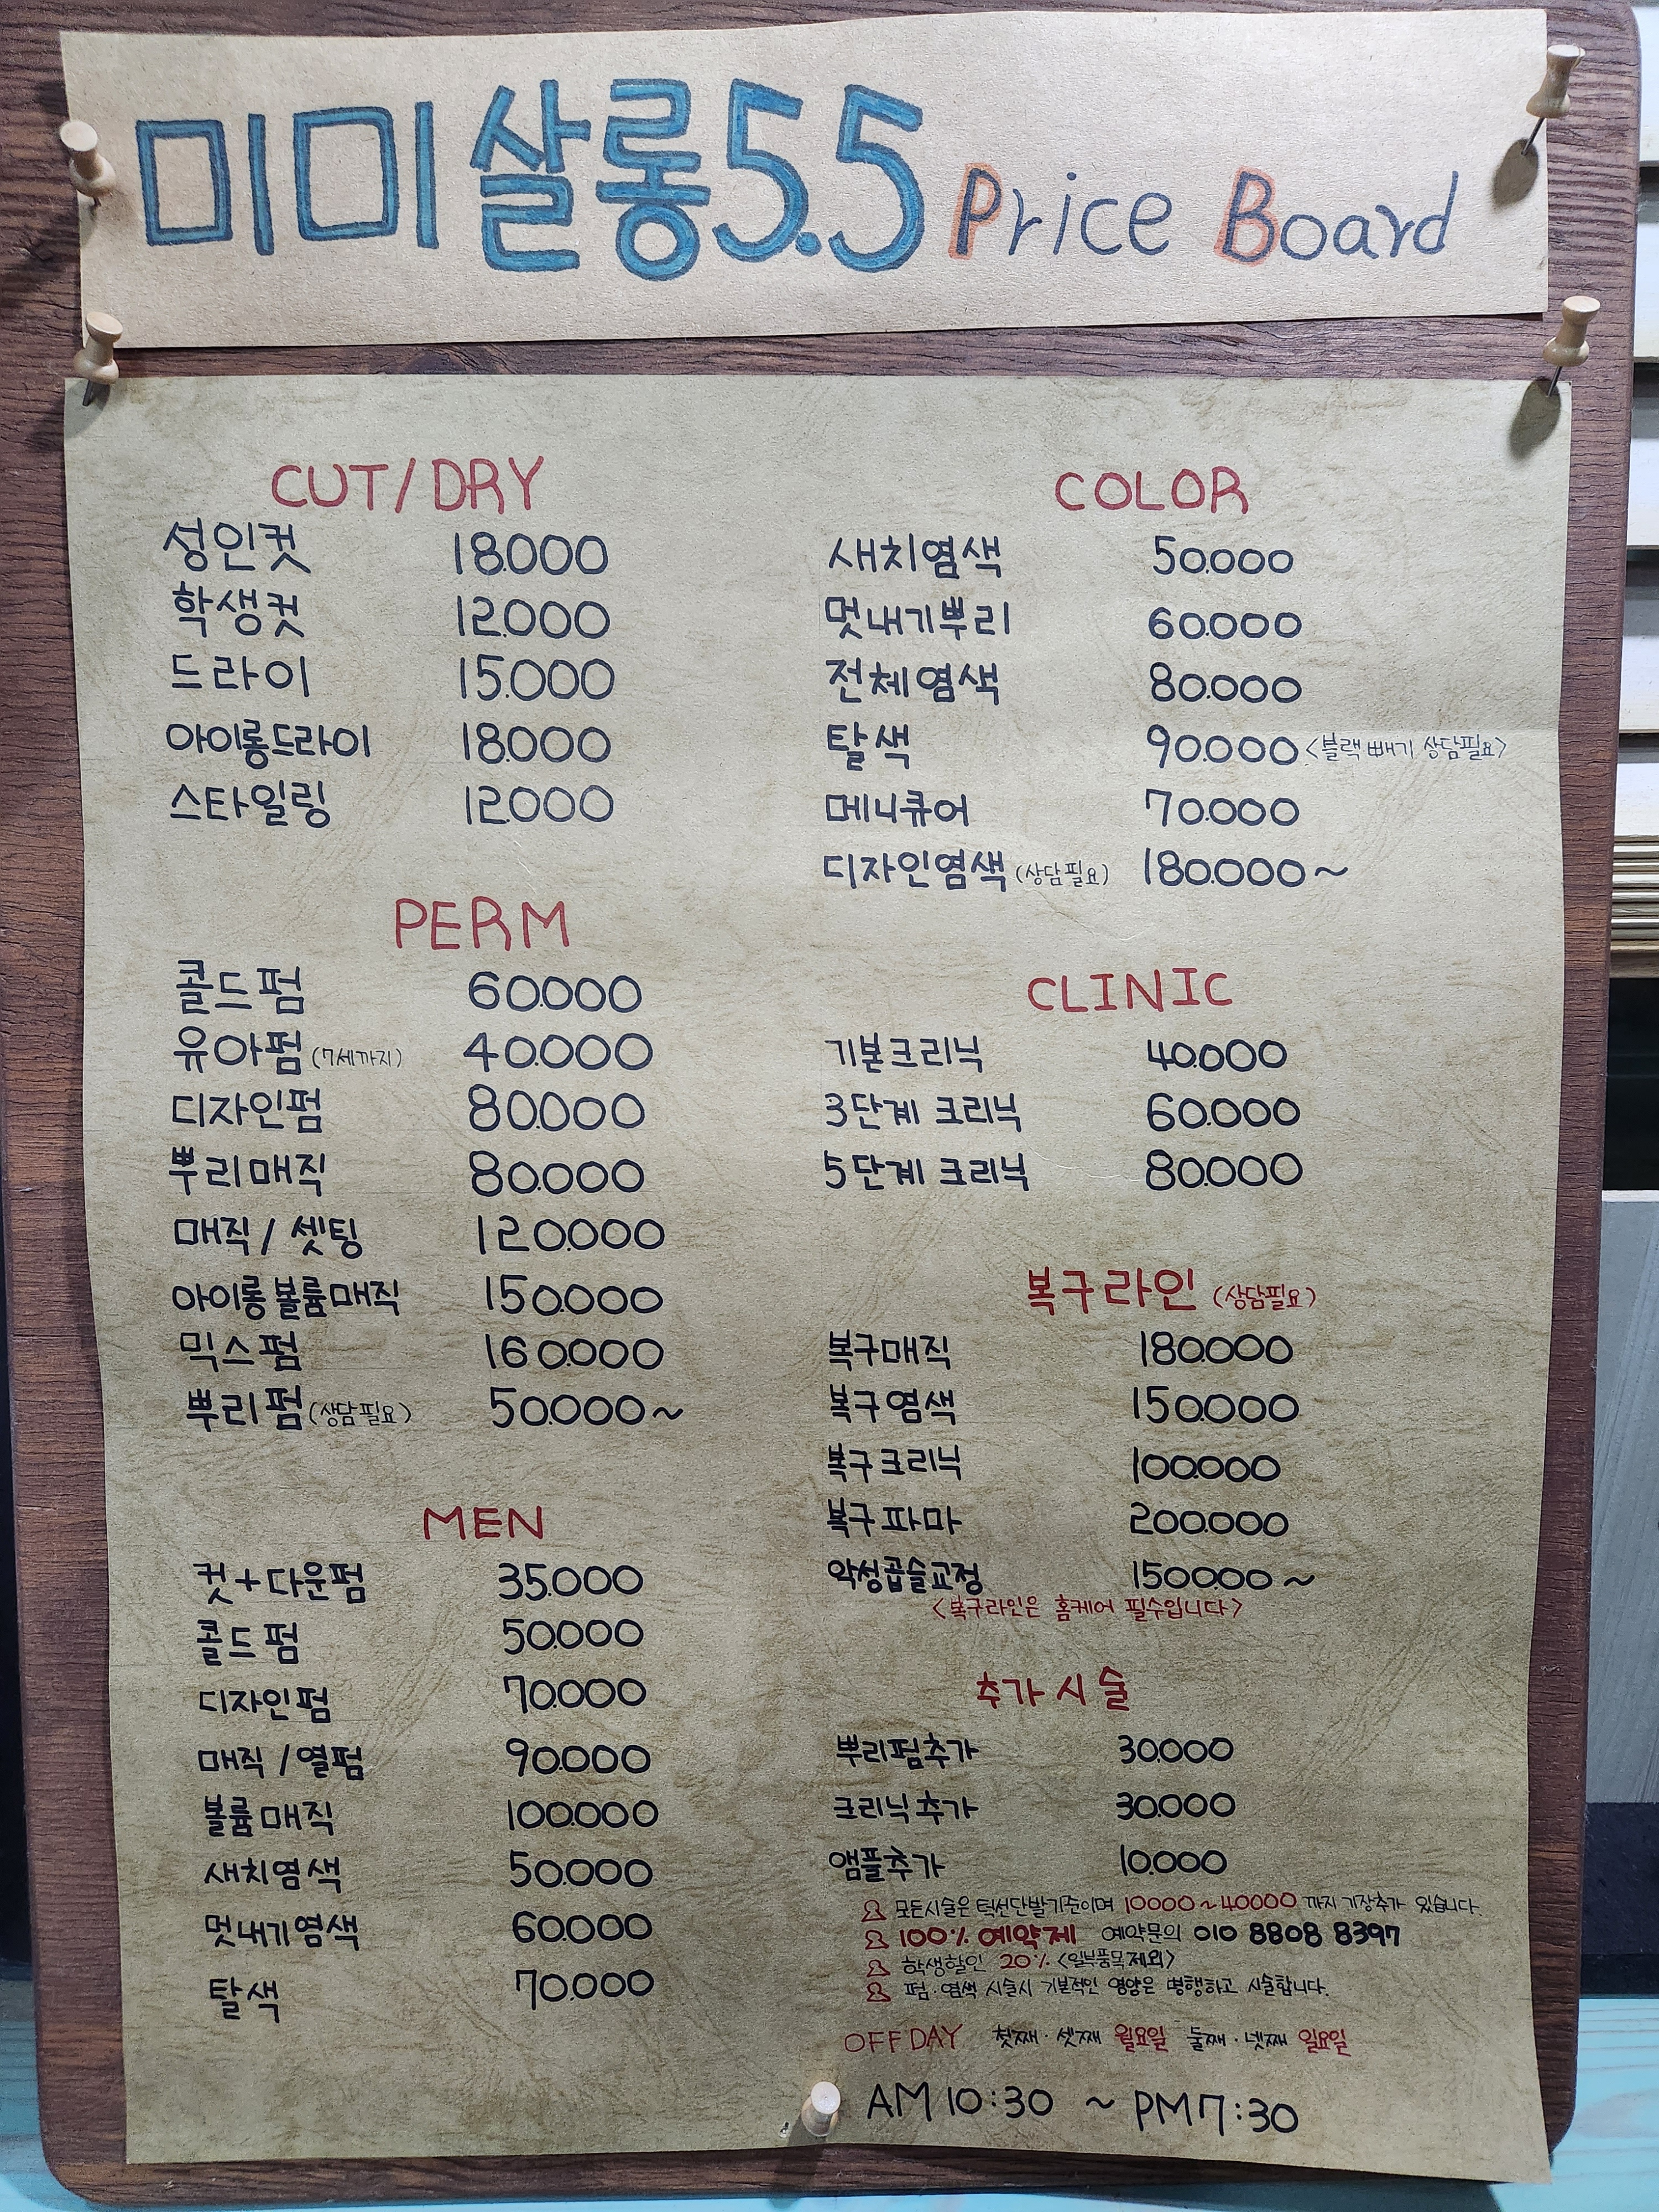 미미살롱5.5 Price Board
CUT/DRY
성인컷 18.000
학생컷 12.000
드라이 15.000
아이롱드라이 18.000
스타일링 12.000
PERM
콜드펌 60.000
유아펌(7세까지) 40.000
디자인펌 80.000
뿌리매직 80.000
매직/셋팅 120.000
아이롱볼륨매직 150.000
믹스펌 160.000
뿌리펌(상담필요) 50.000~
MEN
컷+다운펌 35.000
콜드펌 50.000
디자인펌 70.000
매직/열펌 90.000
볼륨매직 100.000
새치염색 50.000
멋내기염색 60.000
탈색 70.000
COLOR
새치염색 50.000
멋내기뿌리 60.000
전체염색 80.000
탈색 90.000<블랙빼기 상담필요>
메니큐어 70.000
디자인염색(상담필요) 180.000~
CLINIC
기본크리닉 40.000
3단계 크리닉 60.000
5단계 크리닉 80.000
복구라인(상담필요)
복구매직 180.000
복구염색 150.000
복구크리닉 100.000
복구파마 200.000
악성곱슬교정 150.000~
<복구라인은 홈케어 필수입니다>
추가시술
뿌리펌추가 30.000
크리닉추가 30.000
앰플추가 10.000
모든시술은 턱선단발기준이며 10000~40000 까지 기장추가 있습니다.
100% 예약제 예약문의 010 8808 8397
학생할인 20% <일부품목제외>
펌·염색 시술시 기본적인 영양은 병행하고 시술합니다.
OFF DAY 첫째·셋째 월요일 둘째·넷째 일요일
AM 10:30 ~ PM 7:30